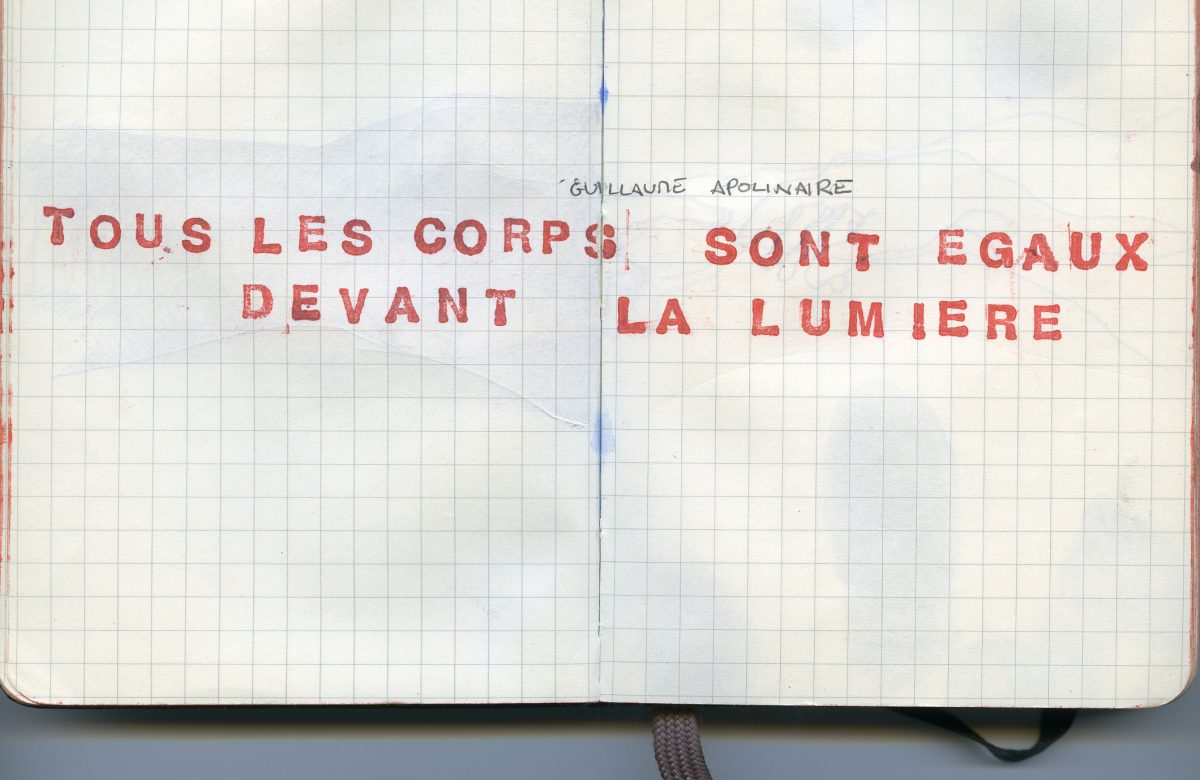 GUILLAUME APOLINAIRE
TOUS LES CORPS SONT EGAUX
DEVANT LA LUMIERE